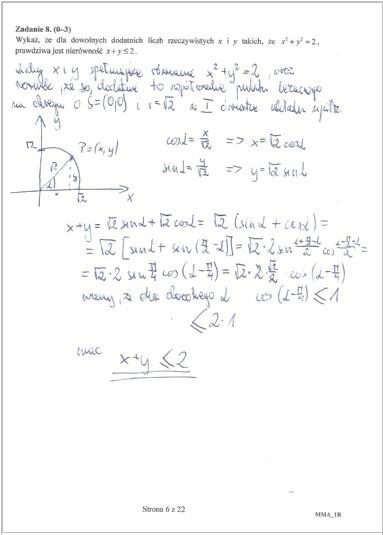 Zadanie 8. (0–3)
Wykaż, że dla dowolnych dodatnich liczb rzeczywistych x i y takich, że x² + y² = 2,
prawdziwa jest nierówność x + y ≤ 2.
Liczby x i y spełniające równanie x² + y² = 2, oraz
są dodatnie to współrzędne punktu leżącego
na okręgu o S=(0,0) i r=√2 w I ćwiartce układu
y
√2
P=(x,y)
√2
y
α
x
√2
x
cosα = x/√2 => x=√2 cosα
sinα = y/√2 => y=√2 sinα
x+y = √2 sinα + √2 cosα = √2 (sinα + cosα) =
= √2 [sinα + sin(π/2 - α)] = √2 · 2 sin (α+π/2-α)/2 cos (α-π/2+α)/2 =
= √2 · 2 sin π/4 cos(α-π/4) = √2 · 2 · √2/2 cos(α-π/4)
wiemy, że dla dowolnego α cos(α-π/4) ≤ 1
≤ 2·1
więc
x+y ≤ 2
Strona 6 z 22
MMA_1R